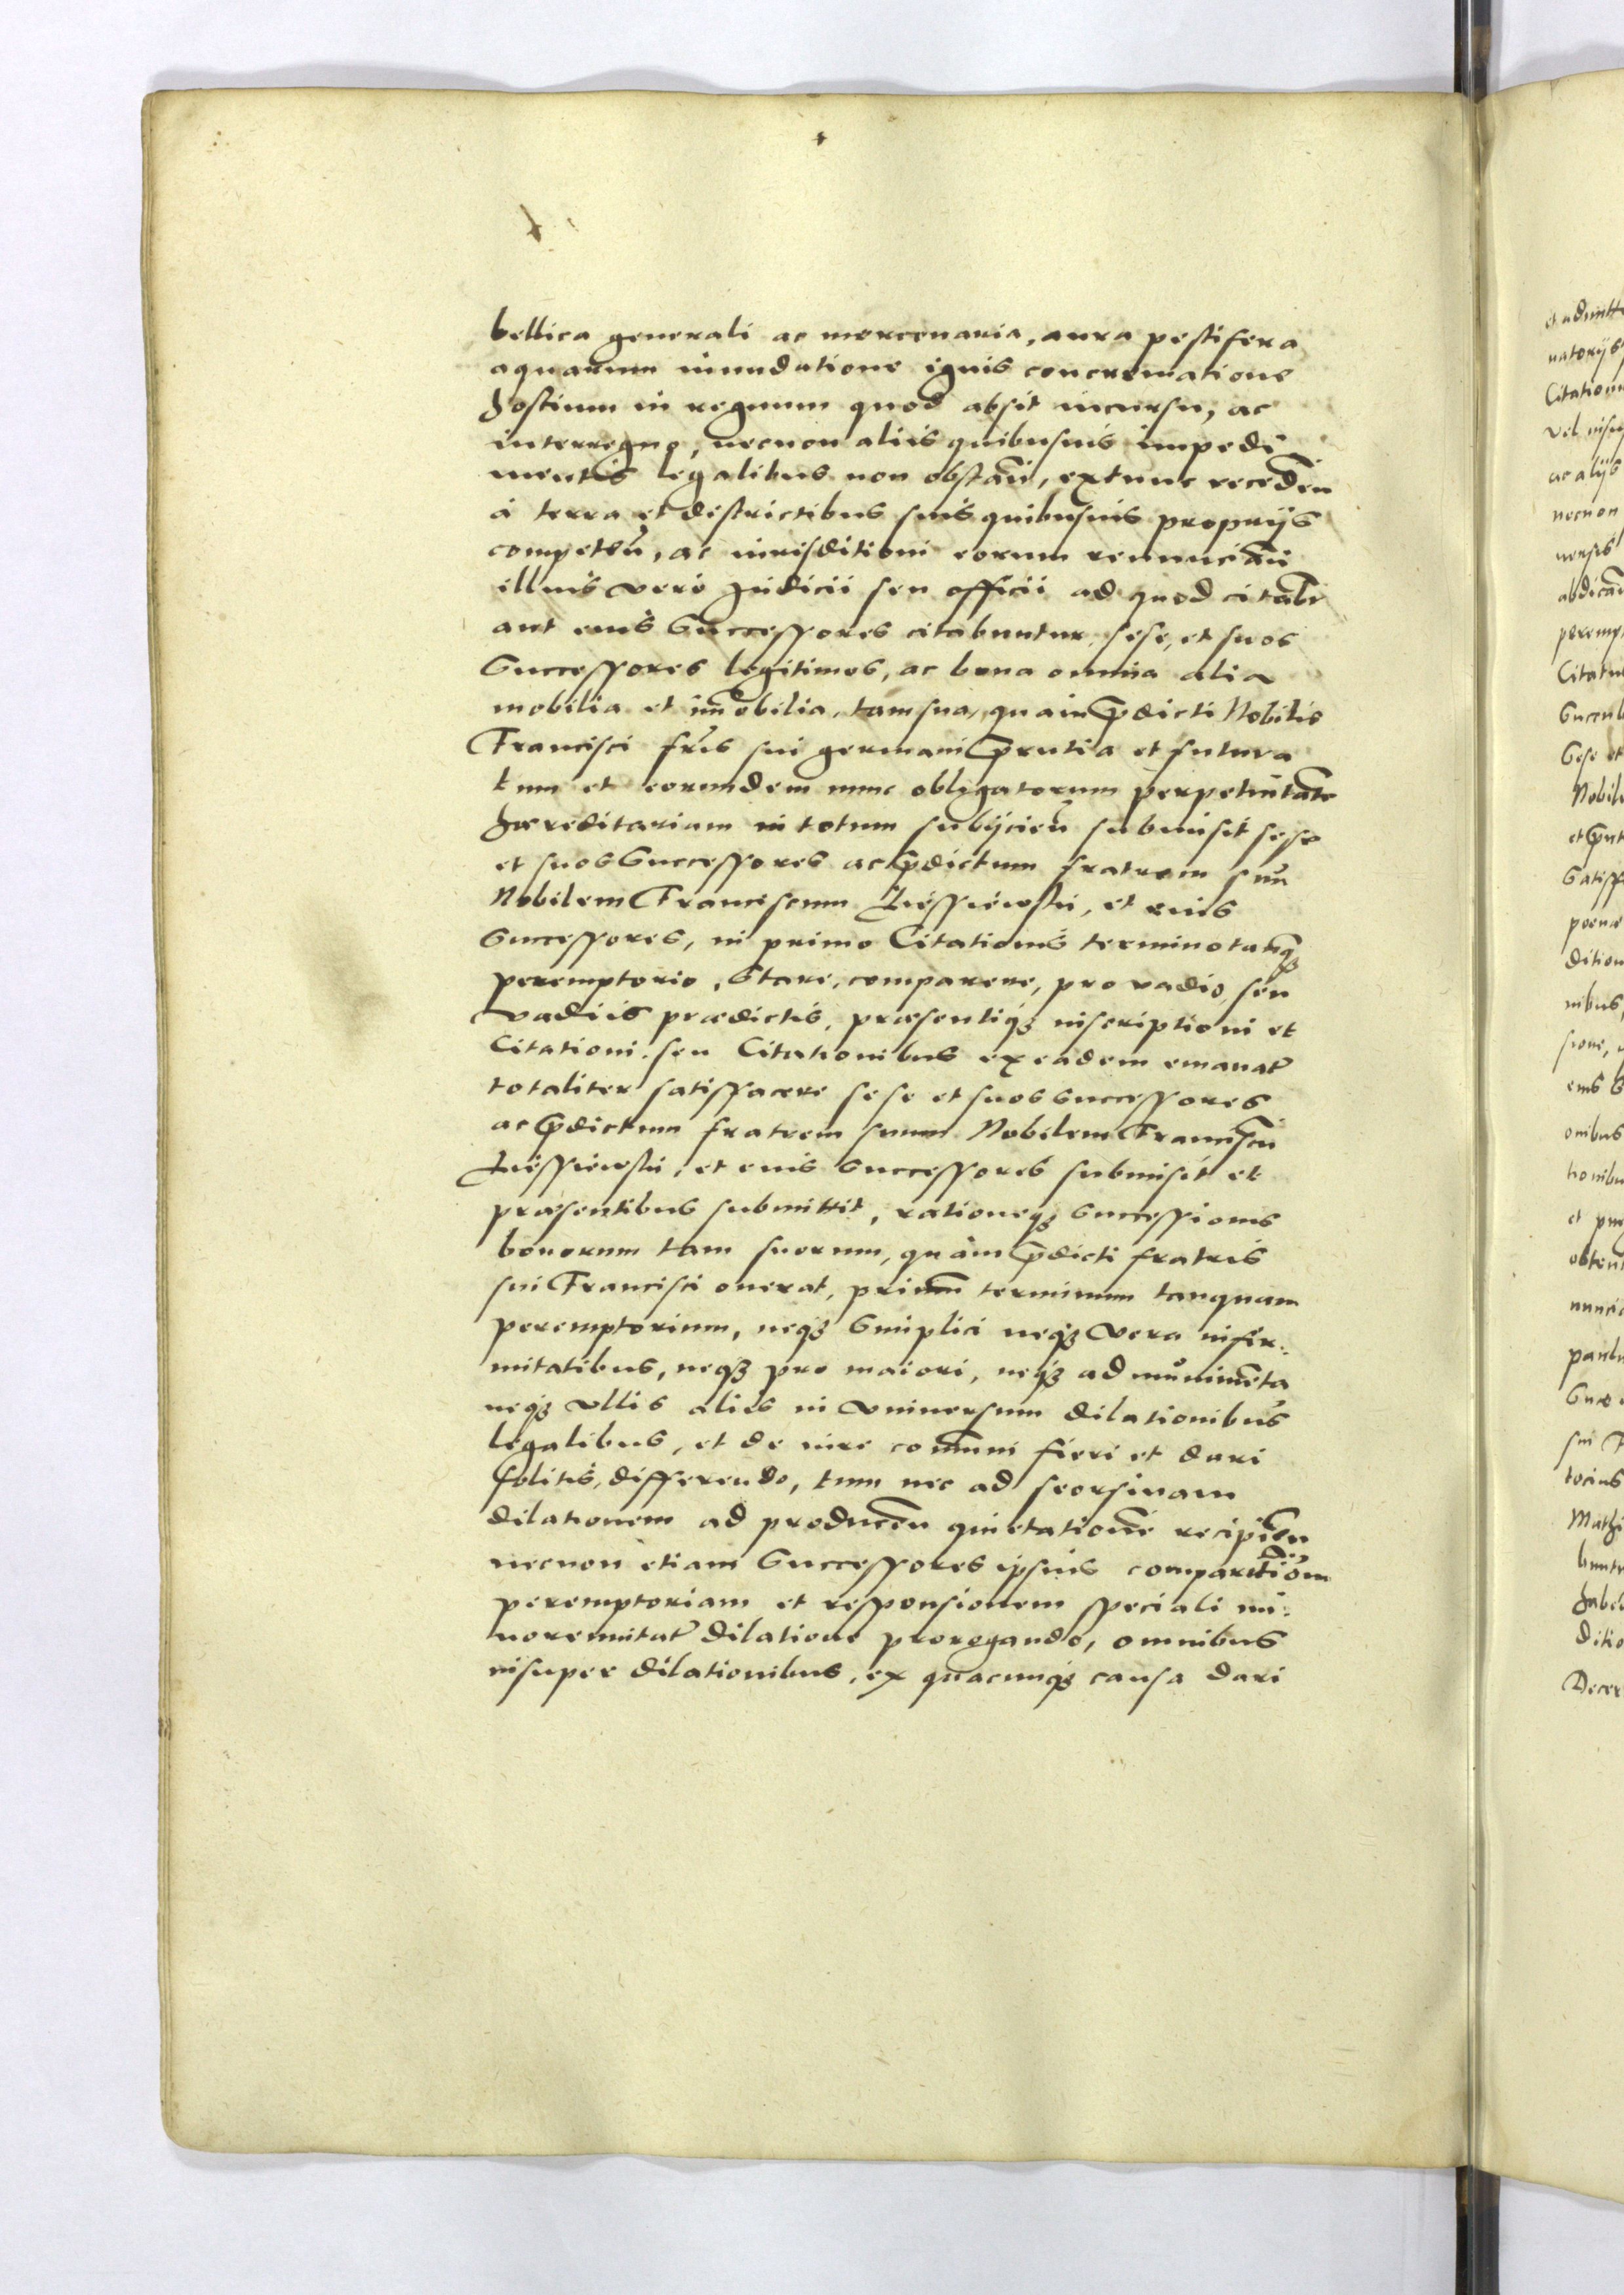 bellica generali ac mercenaria, aura pestifera
aquarum inundatione ignis concrematione
hostium in regnum quod absit incursu, ac
interregno, necnon aliis quibusuis impedi
mentis legalibus non obstān, extunc recedēn
à terra et districtibus suis quibusuis proprijs
competēn, ac iurisditioni eorum renunciān
illuis vero Judicii seu officii ad quod citabr
aut eius Successores citabuntur, sese, et suos
Successores legitimos, ac bona omnia alia
mobilia et im̄obilia, tam sua, quàm p̄dicti Nobilis
Francisci fr̄is sui germani p̄entia et futura
tum et eorundem nunc obligatorum perpetuitatē
haereditariam in totum subijciēn submisit sese
et suos Successores ac p̄dictum fratrem suū
Nobilem Franciscum, et eius
Successores, in primo Citationis termino tanq̄ʒ
peremptorio, Stare, comparere, pro vadio, seu
vadiis praedictis, praesentiqʒ inscriptioni et
Citationi, seu Citationibus ex eadem emanat̄
totaliter satisfacere sese et suos Successores
ac p̄dictum fratrem suum Nobilem Francis̄cū
et eius Successores submisit et
praesentibus submittit, rationeqʒ Successionis
bonorum tam suorum, quàm p̄dicti fratris
sui Francisci onerat, primū terminum tanquam
peremptorium, neqʒ Simplici neqʒ vera infir:
mitatibus, neqʒ pro maiori, neqʒ ad munimēta
neqʒ vllis aliis in vniuersum dilationibus
legalibus, et de iure com̄uni fieri et dari
solitis, differendo, tum nec ad seorsiuam
dilationem ad producēn quietationē recipiēn
necnon etiam Successores ipsius comparitiōem
peremptoriam et responsionem speciali mi:
norennitat̄ dilatione prorogando, omnibus
insuper dilationibus, ex quacunqʒ causa dari